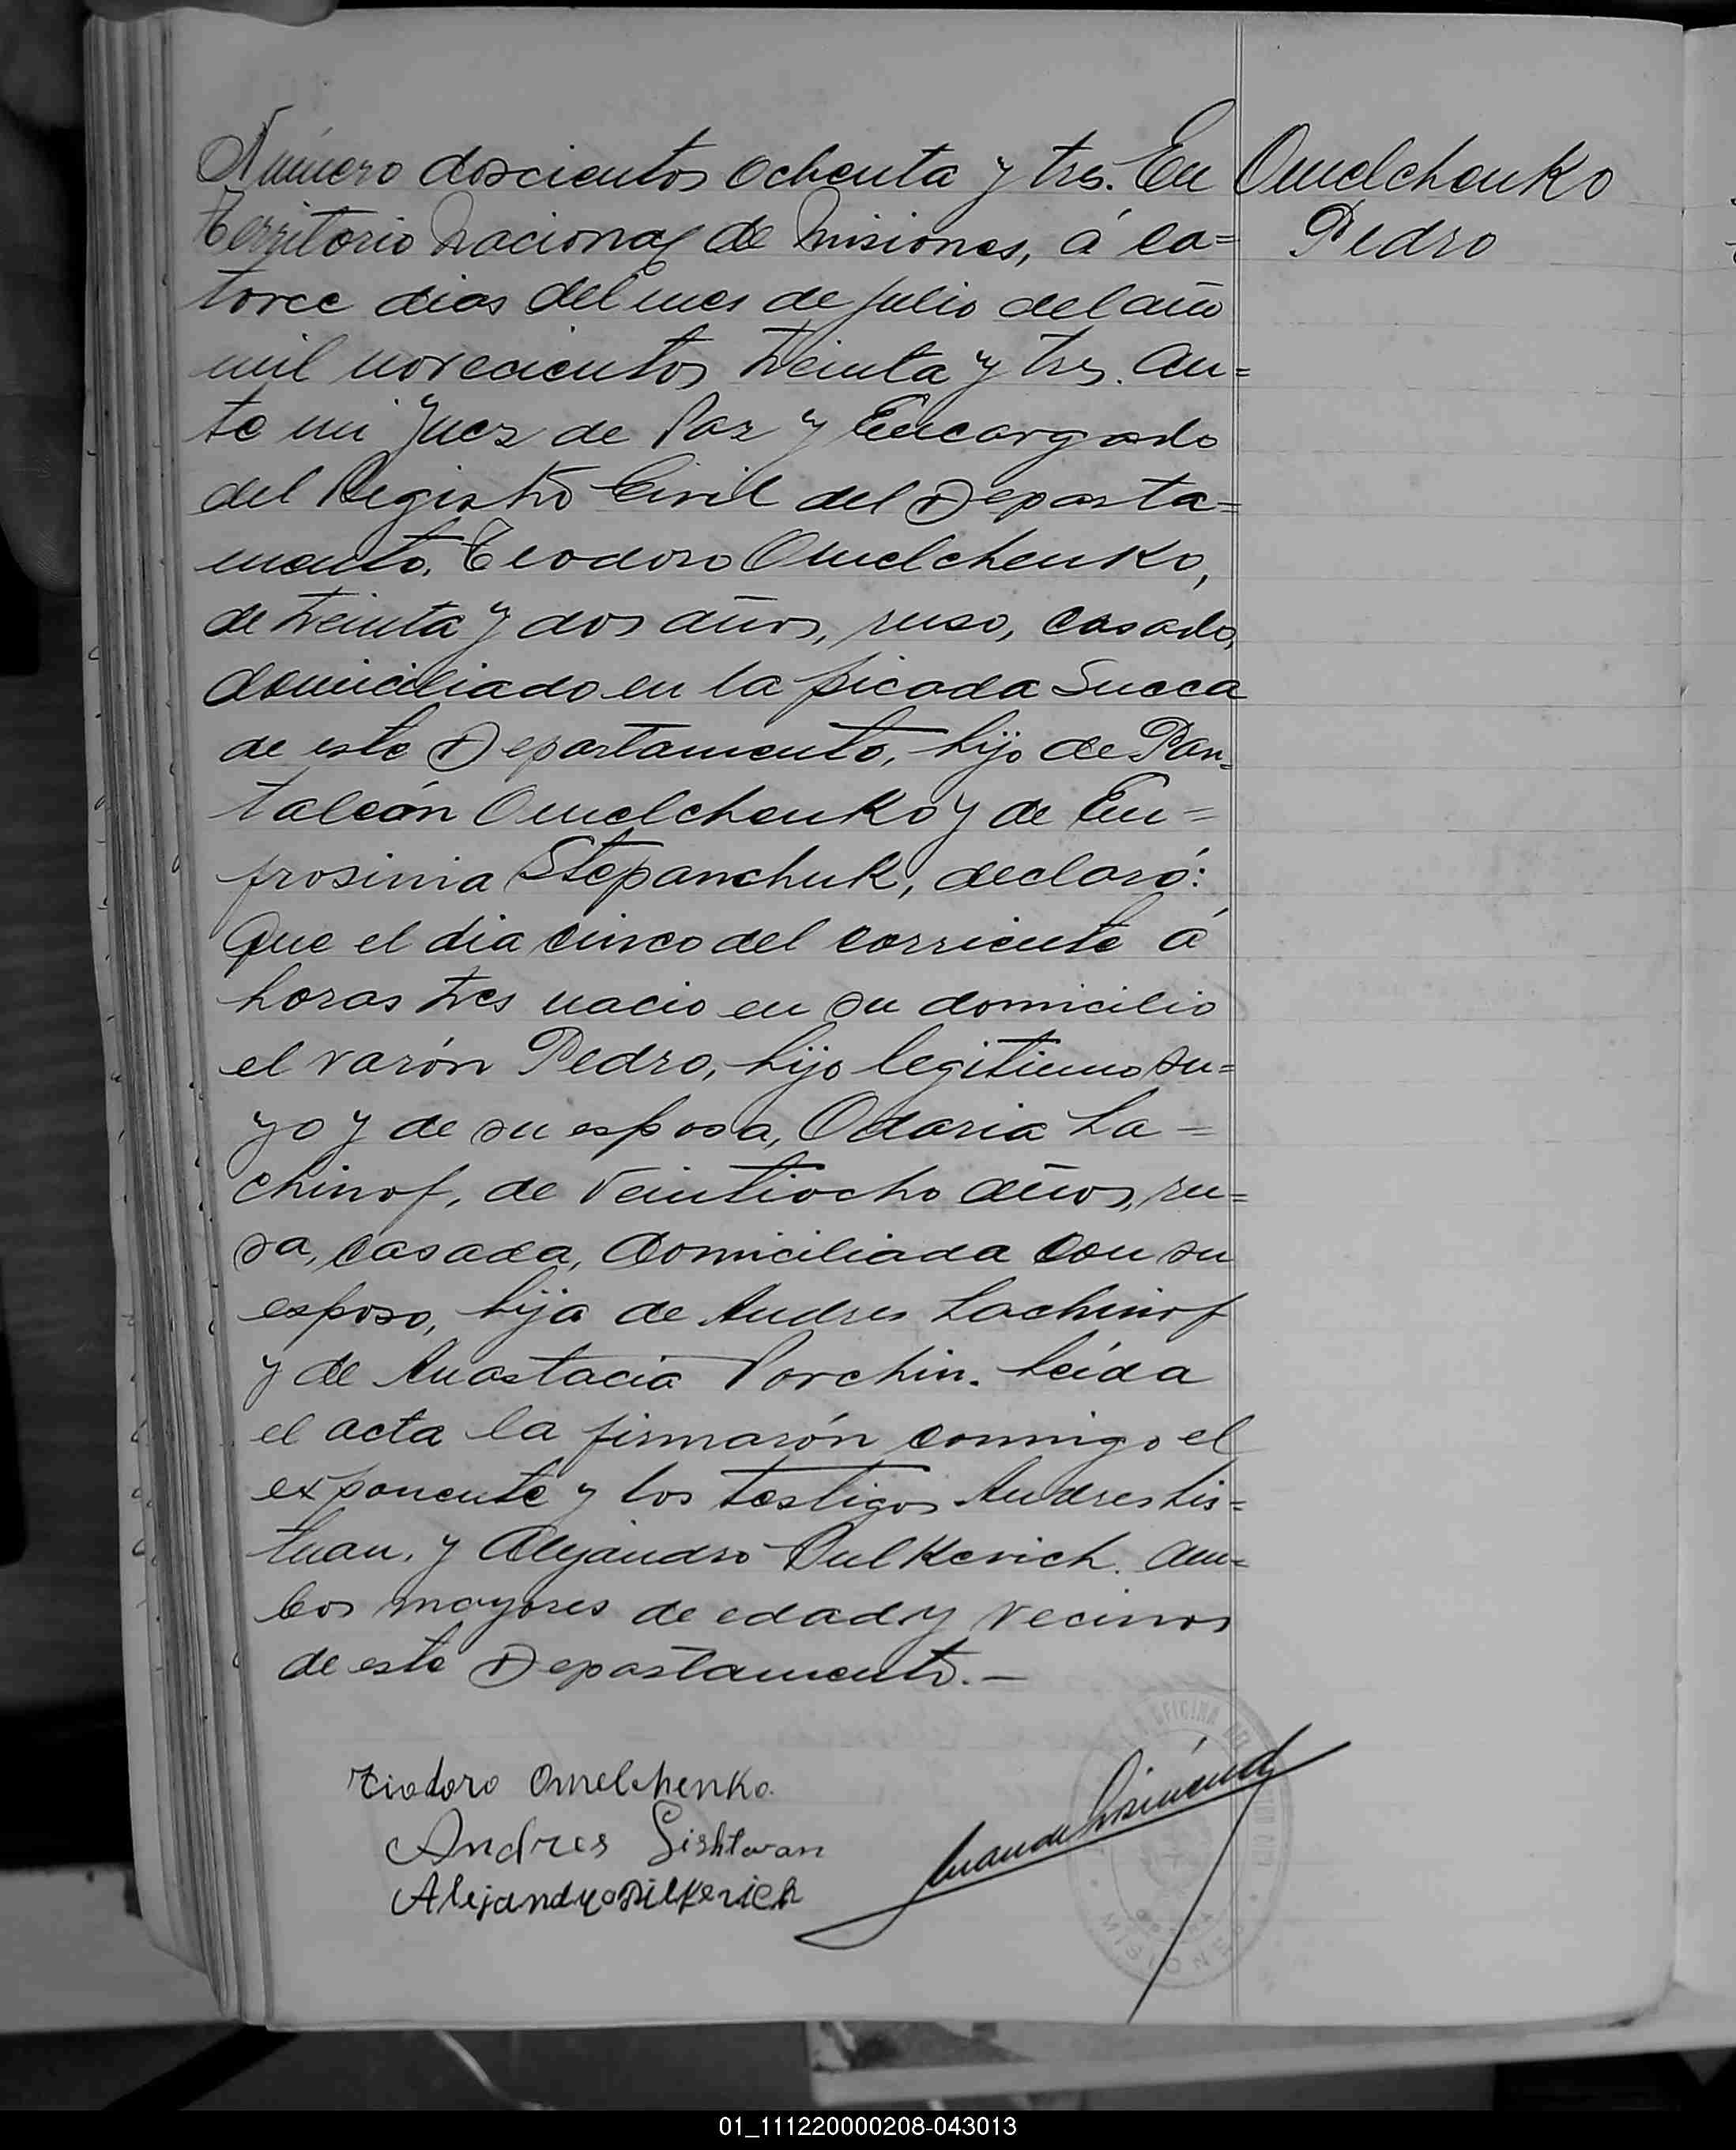 Número doscientos ochenta y tres. En
Territorio Nacional de Misiones, á ca=
torce dias del mes de julio del año
mil novecientos treinta y tres. An=
te mi Juez de Paz y Encargado
del Registro Civil del Departa=
mento. Teodoro Omelchenko,
de treinta y dos años, ruso, casado,
domiciliado en la picada Sueca
de este Departamento, hijo de Pan=
taleón Omelchenko y de Eu=
frosinia Stepanchuk, declaró:
Que el dia cinco del corriente á
horas tres nacio en su domicilio
el varón Pedro, hijo legitimo su=
yo y de su esposa, Odaria La=
chinof, de veintiocho años, ru=
sa, casada, domiciliada con su
esposo, hija de Andres Lachinof
y de Anastacia Porchin. Leida
el acta la firmarón conmigo el
exponente y los testigos Andres Lis=
tuan. y Alejandro Pulkevich. am=
bos mayores de edad y vecinos
de este Departamento.—
Omelchenko
Pedro
Tiodoro Omelchenko.
Andres Lishtvan
Alejandro
OFICINA
MISIONES
01_111220000208-043013